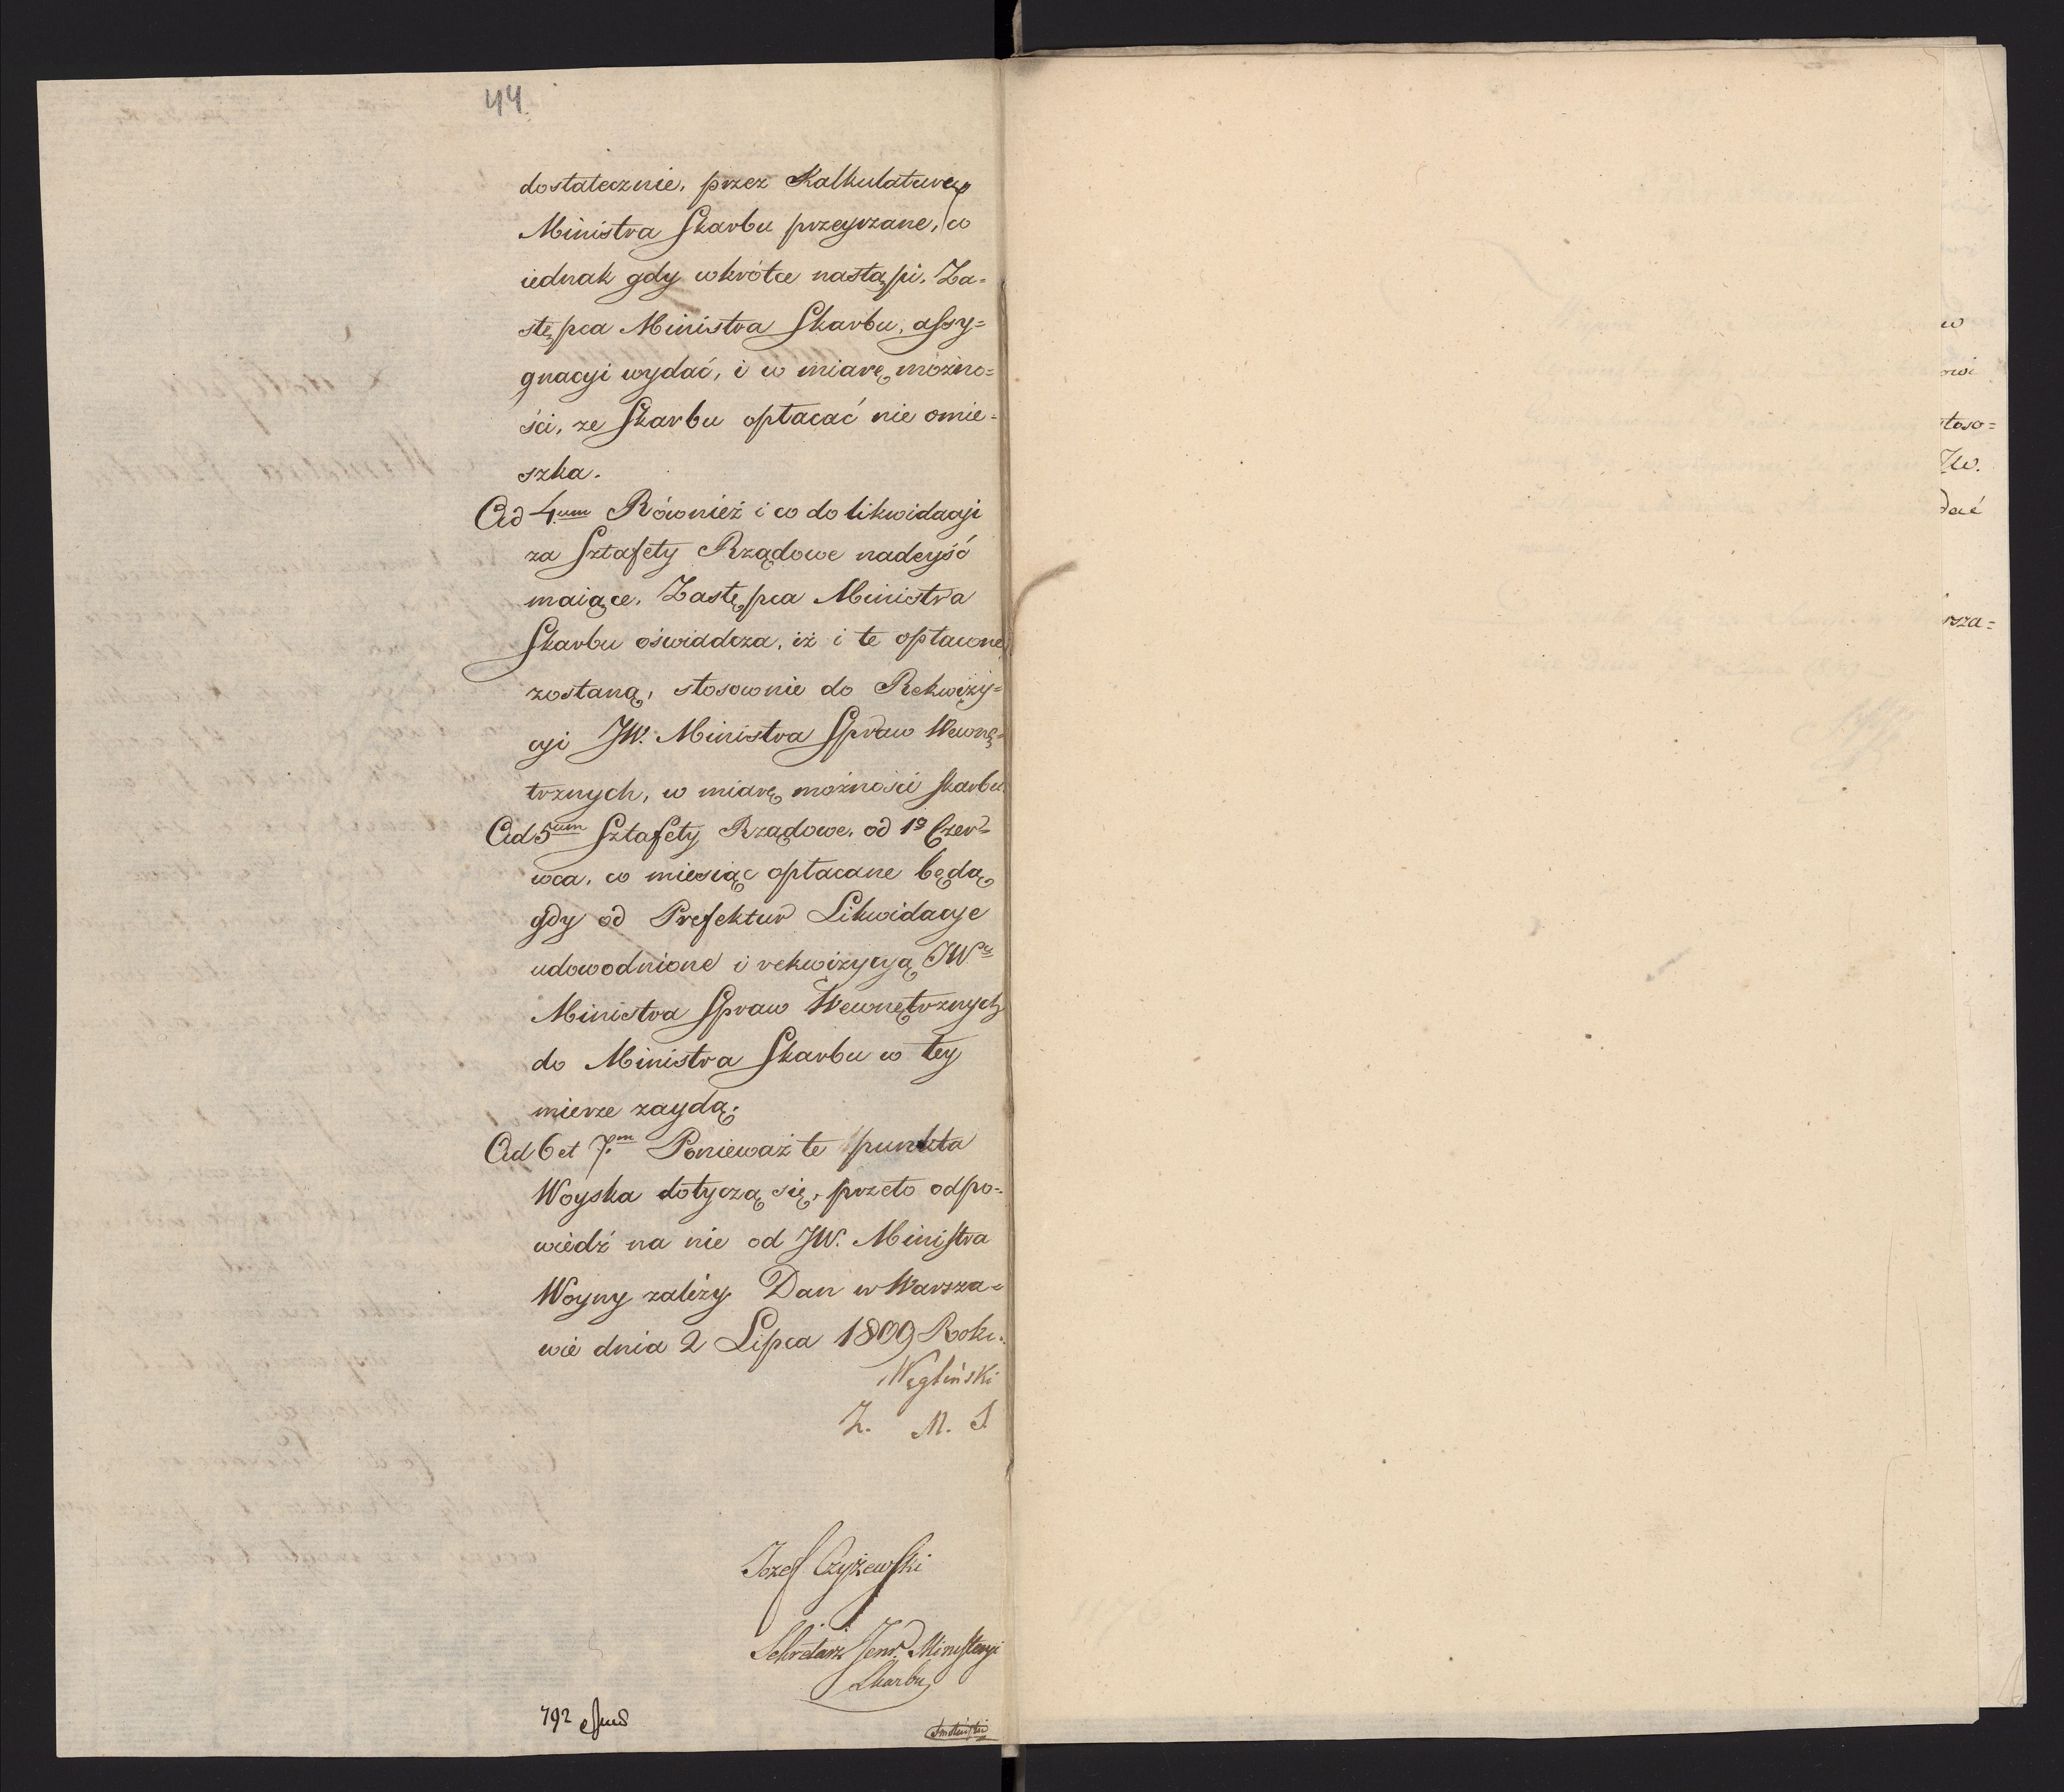 44.
dostatecznie, przez Kalkulaturę
Ministra Skarbu przeyrzane, co
iednak gdy wkrótce nastąpi. Za=
stępca Ministra Skarbu, assy=
gnacyi wydać, i w miarę możno=
ści, ze Skarbu opłacać nie omie=
szka.
Ad 4um Równiéż i co do likwidacyi
za Sztafety Rządowe nadeyść
maiące. Zastępca Ministra
Skarbu oświadcza, iż i te opłacone
zostaną, stosownie do Rekwizy=
cyi JW. Ministra Spraw Wewnę=
trznych, w miarę możności skarbu
Ad 5um Sztafety Rządowe, od 1o Czer=
wca, co miesiąc opłacane będą,
gdy od Prefektur Likwidacye
udowodnione i rekwizycyą JWo
Ministra Spraw Wewnętrznych
do Ministra Skarbu w tey
mierze zaydą.
Ad 6 et 7.m Ponieważ te punkta
Woyska dotyczą się, przeto odpo=
wiedź na nie od JW. Ministra
Woyny zależy. Dan w Warsza=
wie dnia 2 Lipca 1809 Roku.
Węgliński
Z. M. S.
Jozef Czyżewski
Sekretarz Jenr. Ministeryi
Skarbu
792
w
owi
stoso=
JW.
dać
rsza=